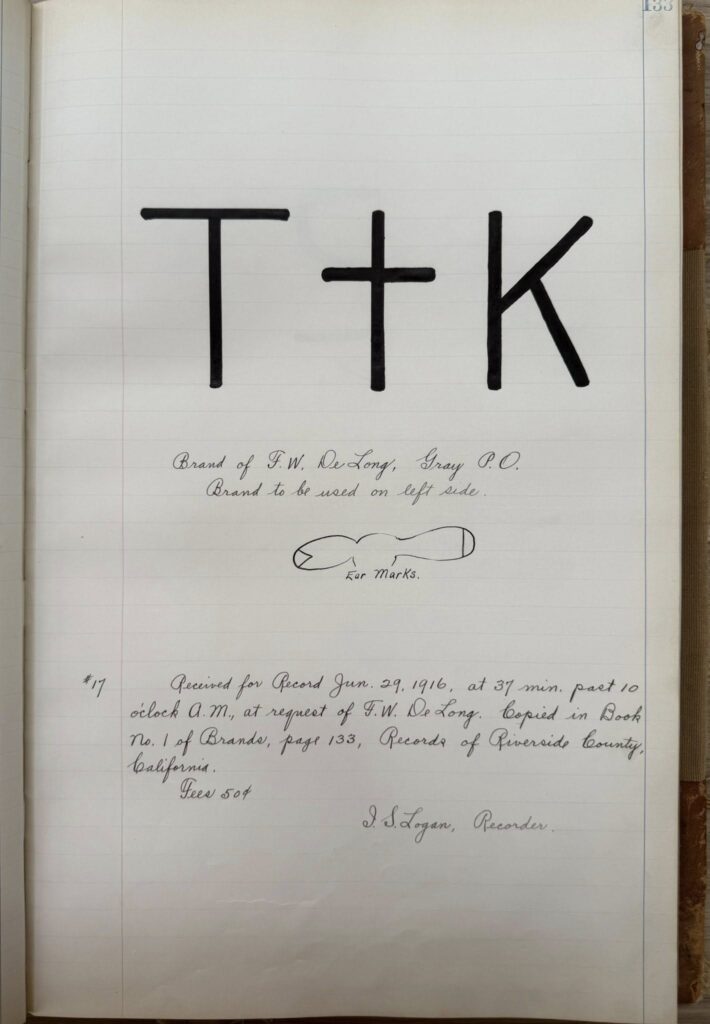 133
T + K
Brand of F.W. De Long, Gray P.O.
Brand to be used on left side.
Ear Marks.
#17 Received for Record Jun. 29, 1916, at 37 min. past 10
o'clock A.M., at request of F.W. De Long. Copied in Book
No. 1 of Brands, page 133, Records of Riverside County,
California.
Fees 50¢
I. S. Logan, Recorder.